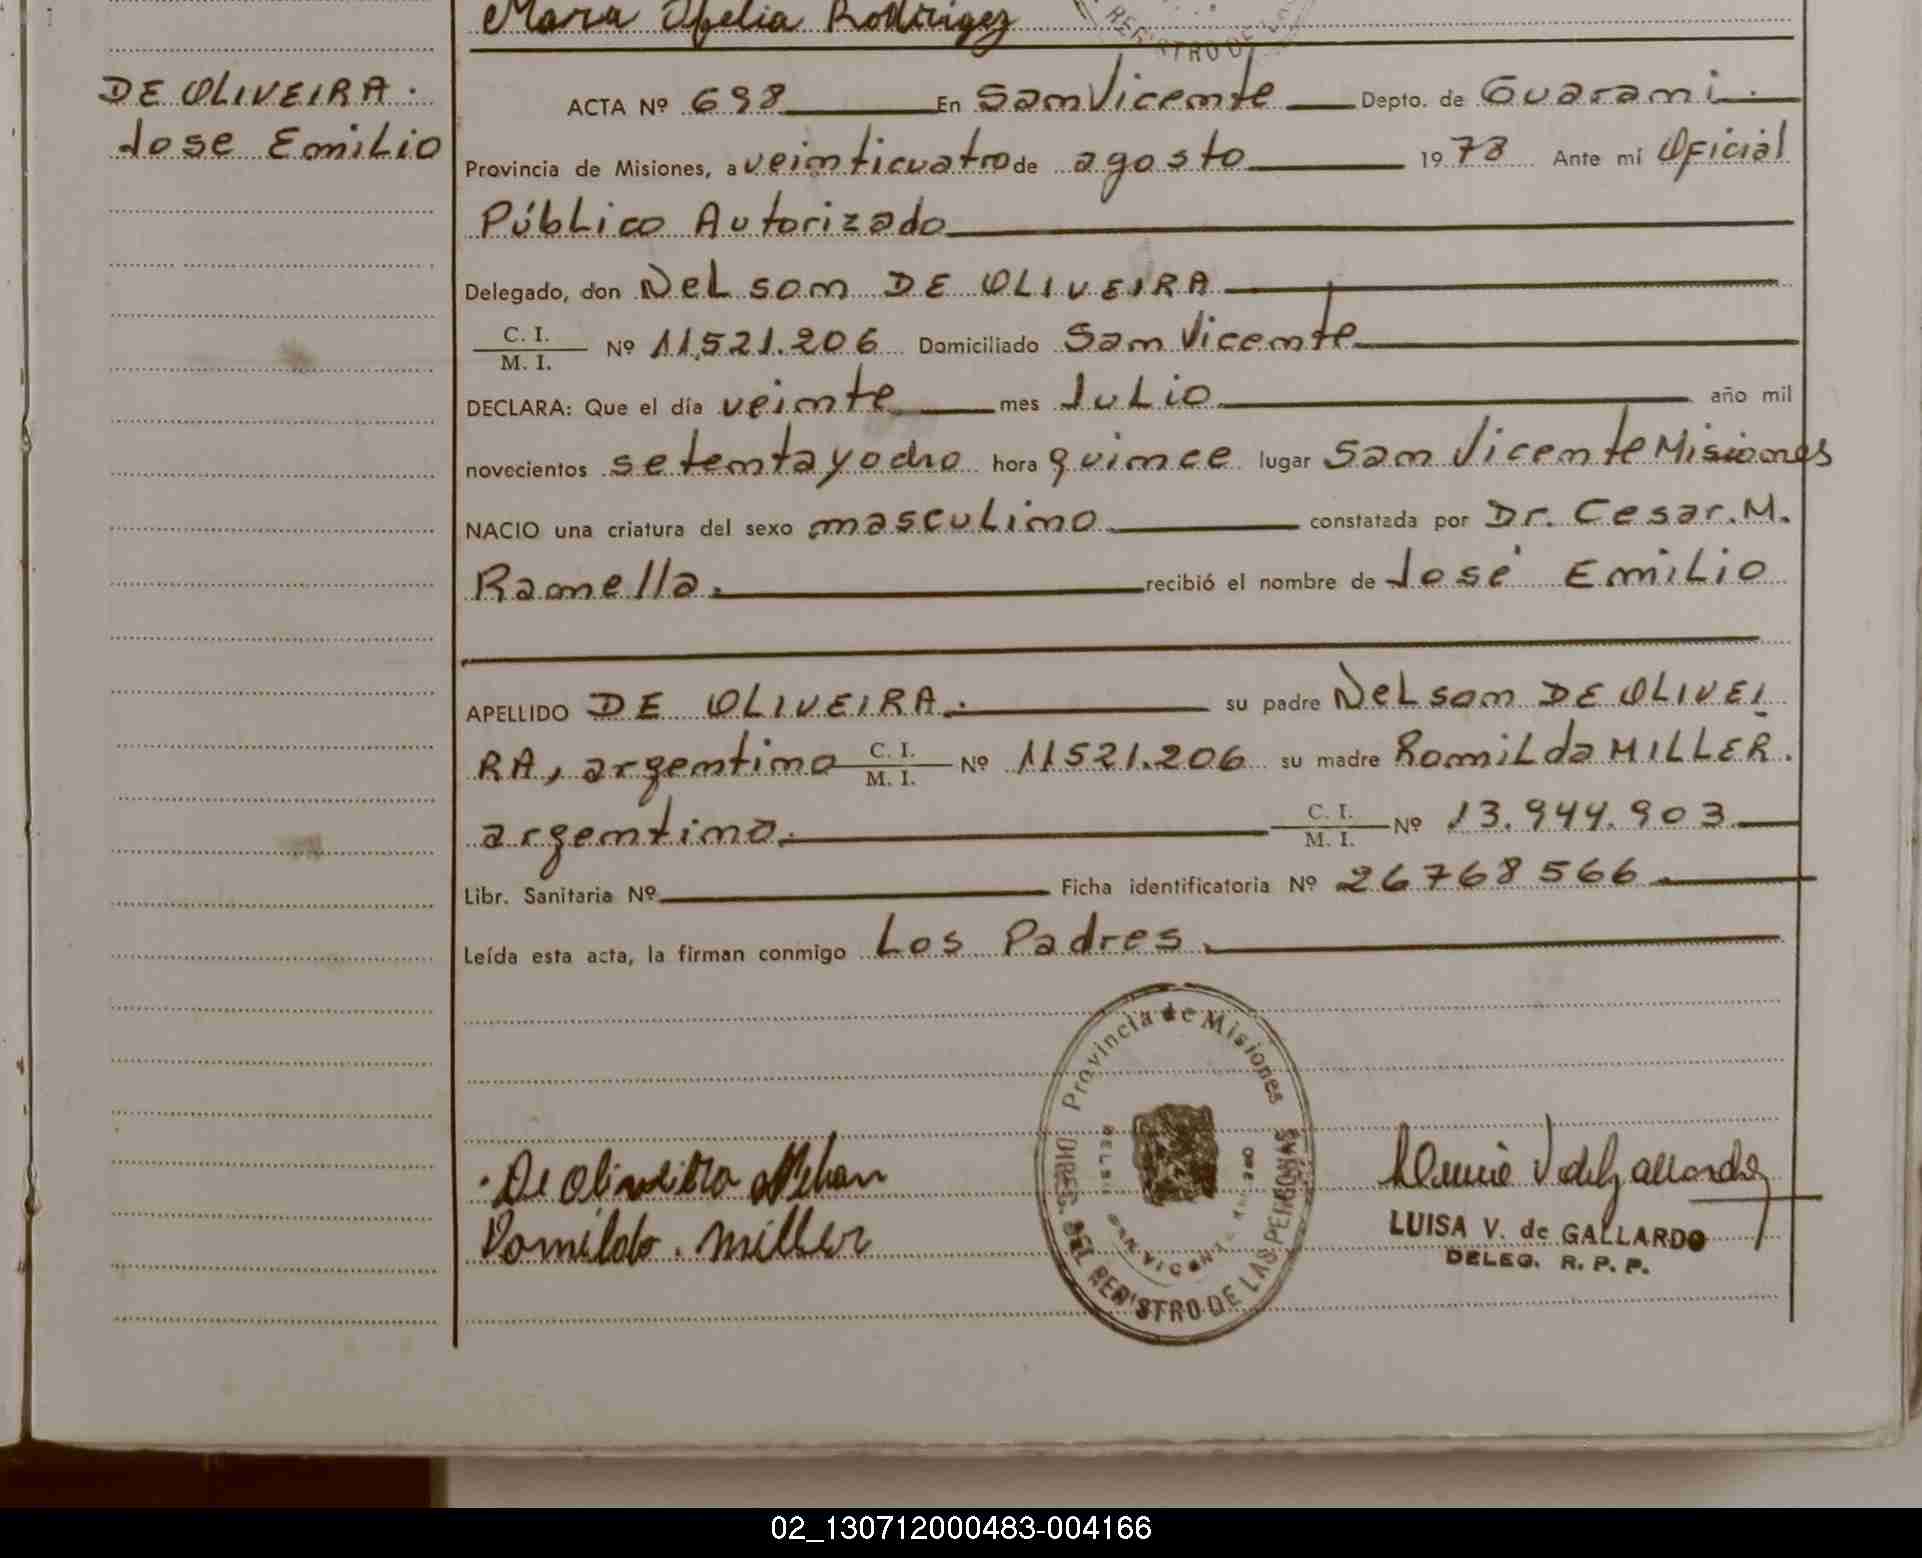 Maria Ofelia Rodrigez
REGISTRO DE
DE OLIVEIRA.
Jose Emilio
ACTA Nº 698 En San Vicente Depto. de Guarani.
Provincia de Misiones, a veinticuatro de agosto 1978 Ante mí Oficial
Público Autorizado
Delegado, don Nelson DE OLIVEIRA
C. I.
M. I. Nº 11.521.206 Domiciliado San Vicente
DECLARA: Que el día veinte mes Julio año mil
novecientos setenta y ocho hora quince lugar San Vicente Misiones
NACIO una criatura del sexo masculino constatada por Dr. Cesar. M.
Ramella. recibió el nombre de José Emilio
APELLIDO DE OLIVEIRA. su padre Nelson DE OLIVEI
RA, argentino C. I. M. I. Nº 11521.206 su madre Romilda MILLER.
argentina. C. I. M. I. Nº 13.944.903
Libr. Sanitaria Nº Ficha identificatoria Nº 26768566
Leída esta acta, la firman conmigo Los Padres.
Provincia de Misiones
DIREC. DEL REGISTRO DE LAS PERSONAS
SAN VICENTE
De Oliveira Nelson
Romilda. Miller
LUISA V. de GALLARDO
DELEG. R. P. P.
02_130712000483-004166